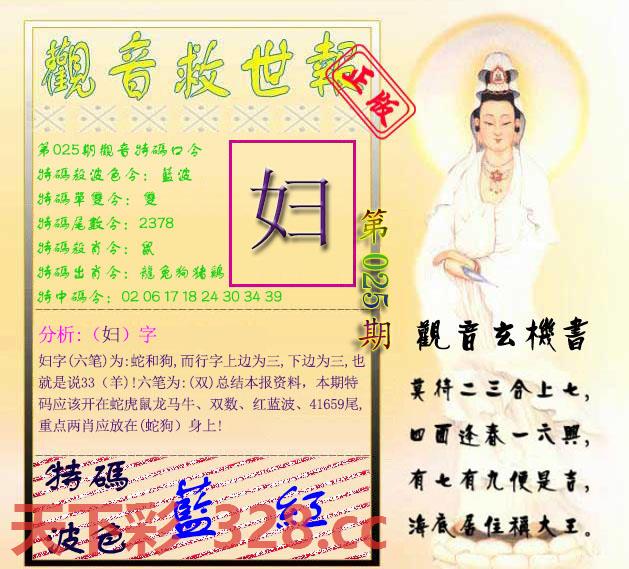 觀音救世報
正版
第025期觀音特碼口令
特碼殺波色令：藍波
特碼單雙令：雙
特碼尾數令：2378
特碼殺肖令：鼠
特碼出肖令：龍兔狗猪鷄
特中碼令：02 06 17 18 24 30 34 39
妇
第025期
分析:（妇）字
妇字(六笔)为:蛇和狗,而行字上边为三,下边为三,也
就是说33（羊)!六笔为:(双)总结本报资料，本期特
码应该开在蛇虎鼠龙马牛、双数、红蓝波、41659尾,
重点两肖应放在(蛇狗）身上!
特碼
波色
藍 紅
天下彩-1328.cc
觀音玄機書
莫待二三合上七，
四面逢春一六興，
有七有九便是吉，
海底居住稱大王。